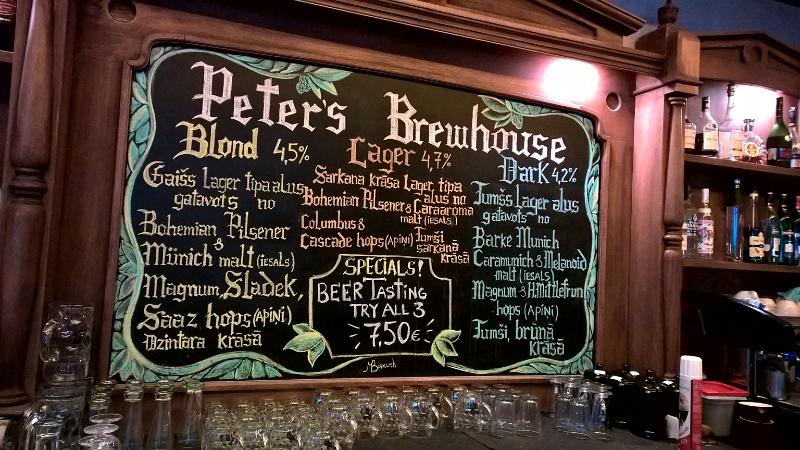 Peter's Brewhouse
Blond 4,5%
Gaišs Lager tipa alus
gatavots no
Bohemian Pilsener
&
Münich malt (iesals)
Magnum, Sladek,
Saaz hops (Apiņi)
Dzintara krāsā
Lager 4,7%
Sarkana krāsa Lager, tipa
alus no
Bohemian Pilsener & Caraaroma
malt (iesals)
Columbus &
Cascade hops (Apiņi)
Tumši
sarkanā
krāsā
SPECIALS!
BEER TASTING
TRY ALL 3
7,50€
Dark 4,2%
Tumšs Lager alus
gatavots no
Barke Munich
Caramunich & Melanoid
malt (iesals)
Magnum & H.Mittlefrun
hops (Apiņi)
Tumši, brūnā
krāsā